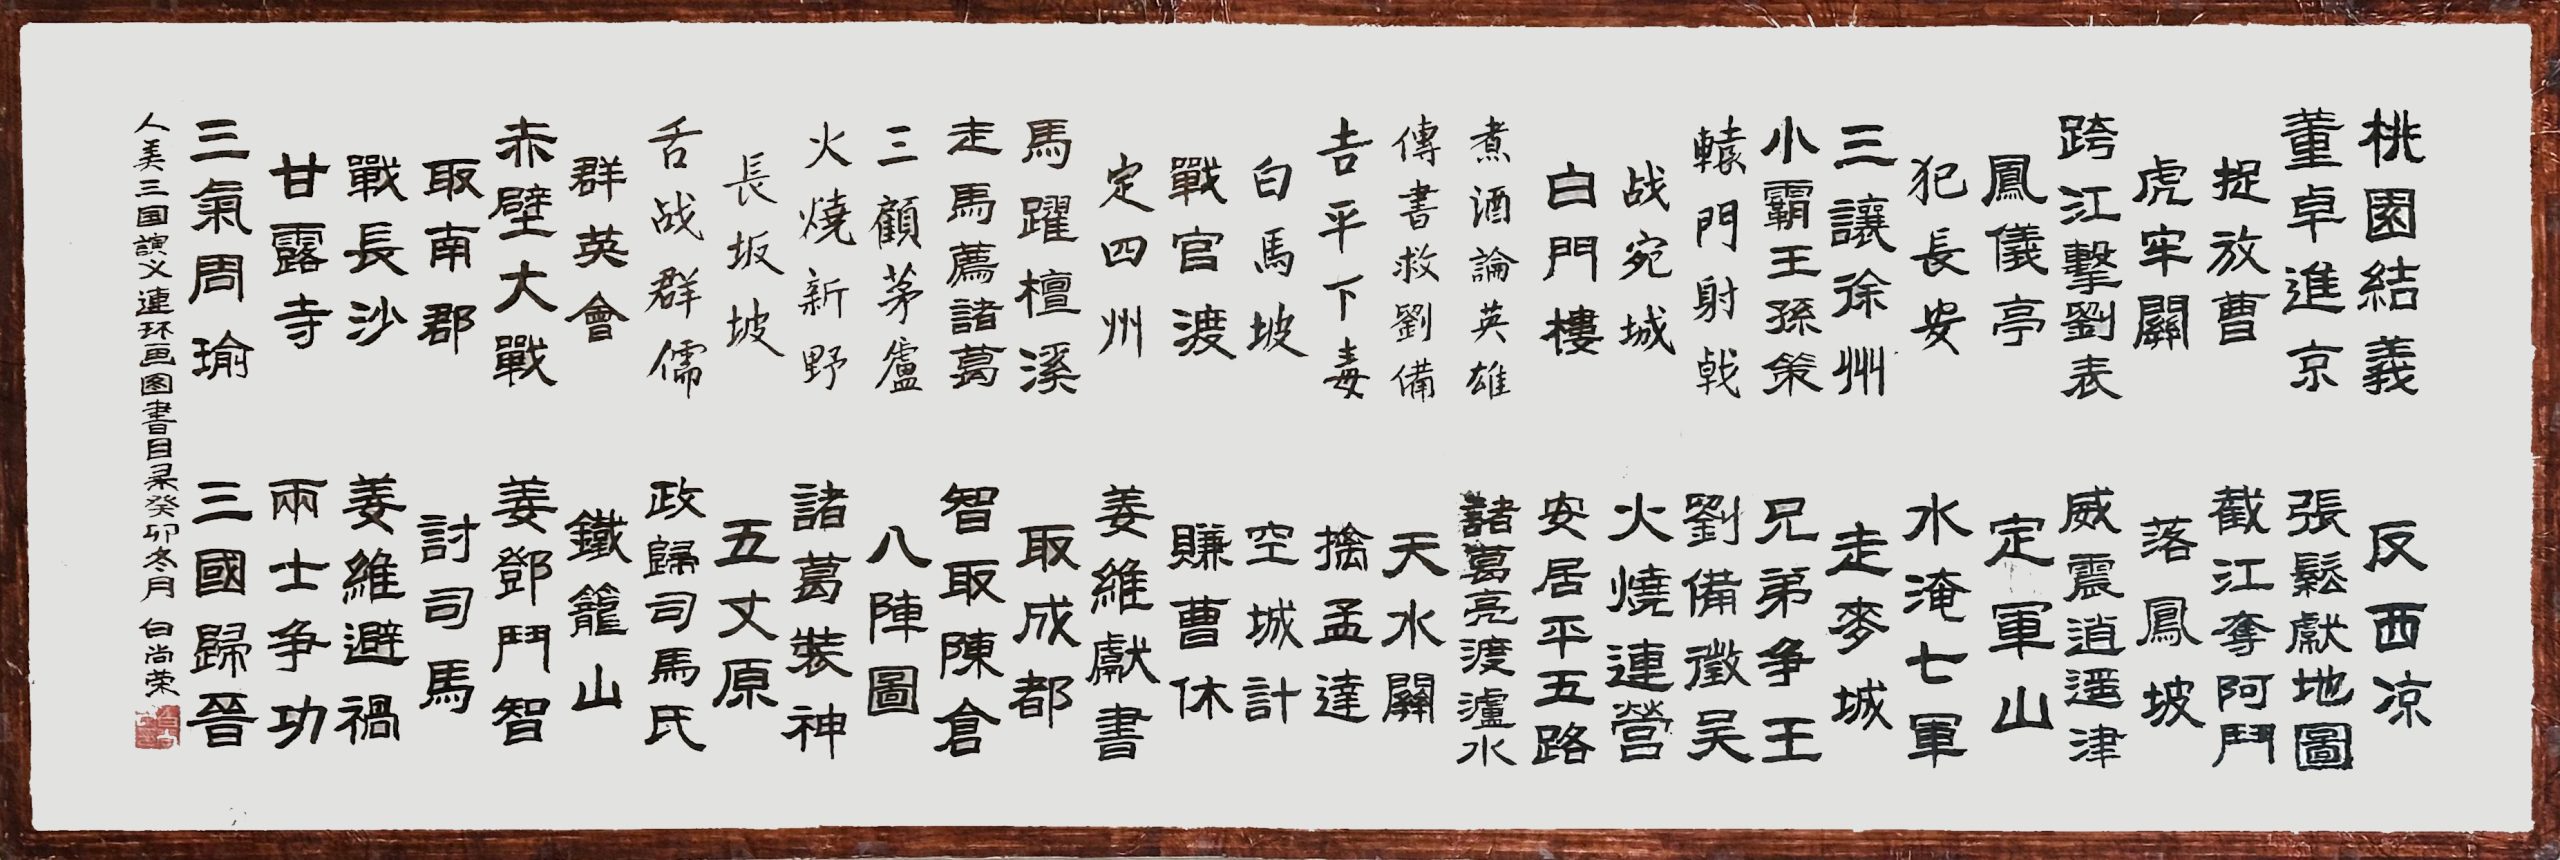 桃園結義
董卓進京
捉放曹
虎牢關
跨江擊劉表
鳳儀亭
犯長安
三讓徐州
小霸王孫策
轅門射戟
战宛城
白門樓
煮酒論英雄
傳書救劉備
吉平下毒
白馬坡
戰官渡
定四州
馬躍檀溪
走馬薦諸葛
三顧茅廬
火燒新野
長坂坡
舌战群儒
群英會
赤壁大戰
取南郡
戰長沙
甘露寺
三氣周瑜
反西凉
張鬆獻地圖
截江奪阿鬥
落鳳坡
威震逍遥津
定軍山
水淹七軍
走麥城
兄弟争王
劉備徵吴
火燒連營
安居平五路
諸葛亮渡瀘水
天水關
擒孟達
空城計
賺曹休
姜維獻書
取成都
智取陳倉
八陣圖
諸葛裝神
五丈原
政歸司馬氏
鐵籠山
姜鄧鬥智
討司馬
姜維避禍
兩士争功
三國歸晉
人美三国演义連环画图書目录癸卯冬月 白尚荣